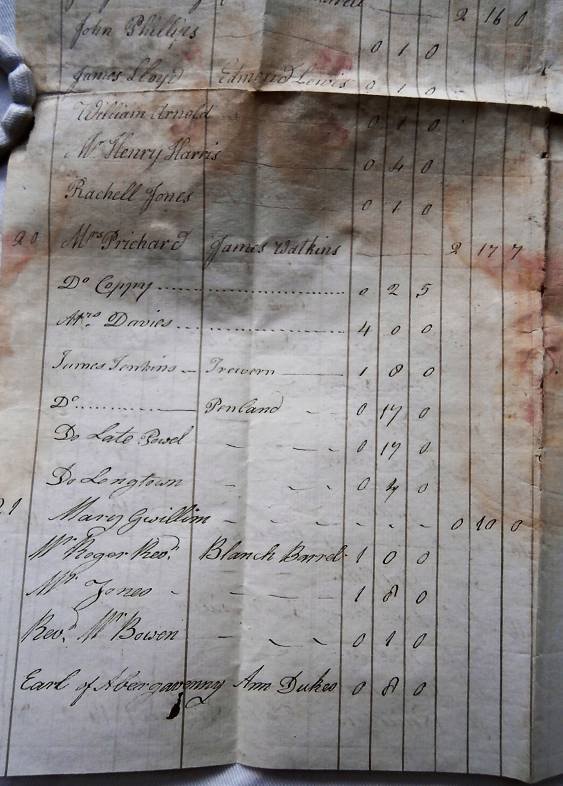 2 16 0
John Phillips 0 1 0
James Lloyd Edmond Lewis 0 1 0
William Arnold 0 1 0
Mr Henry Harris 0 4 0
Rachell Jones 0 1 0
20 Mrs Prichard James Watkins 2 17 7
Do Coppy 0 2 5
Mrs Davies 4 0 0
James Jenkins Trewern 1 8 0
Do Penland 0 17 0
Do Late Powel 0 17 0
Do Longtown 0 4 0
21 Mary Gwillim 0 10 0
Mr Roger Blanch 1 0 0
Mr Jones 1 8 0
Revd Mr Bowen 0 1 0
Earl of Abergavenny Ann Dukes 0 8 0